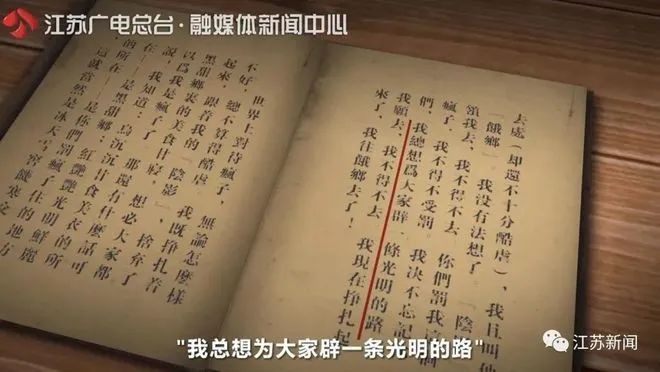 江苏广电总台·融媒体新闻中心
去處(却還不十分酷虐)，我且叫他
「餓鄉」。我沒有法想了。「陰
領我去，我不得不去。你們罰我這
瘋子，我不得不受罰。我決不忘記
們，我總想爲大家辟一條光明的路
我願去，我不得不去。我現在掙扎起
來了，我往餓鄉去了！
世界上對待瘋子，無論怎麼樣
不好，總不算得酷虐。我既掙扎着
起來，跟着我的「陰影」，捨棄了
黑甜鄉裏的美食甘寢，想必大家都
以爲我是瘋子了。那還有什麼話可
說！我知道：烏沉沉甘食美衣的所
在——是黑甜鄉；紅艷艷光明鮮麗
的所在——是你們罰瘋子住的地
這就當然是冰天雪窖饑寒交
"我总想为大家辟一条光明的路"
江苏新闻